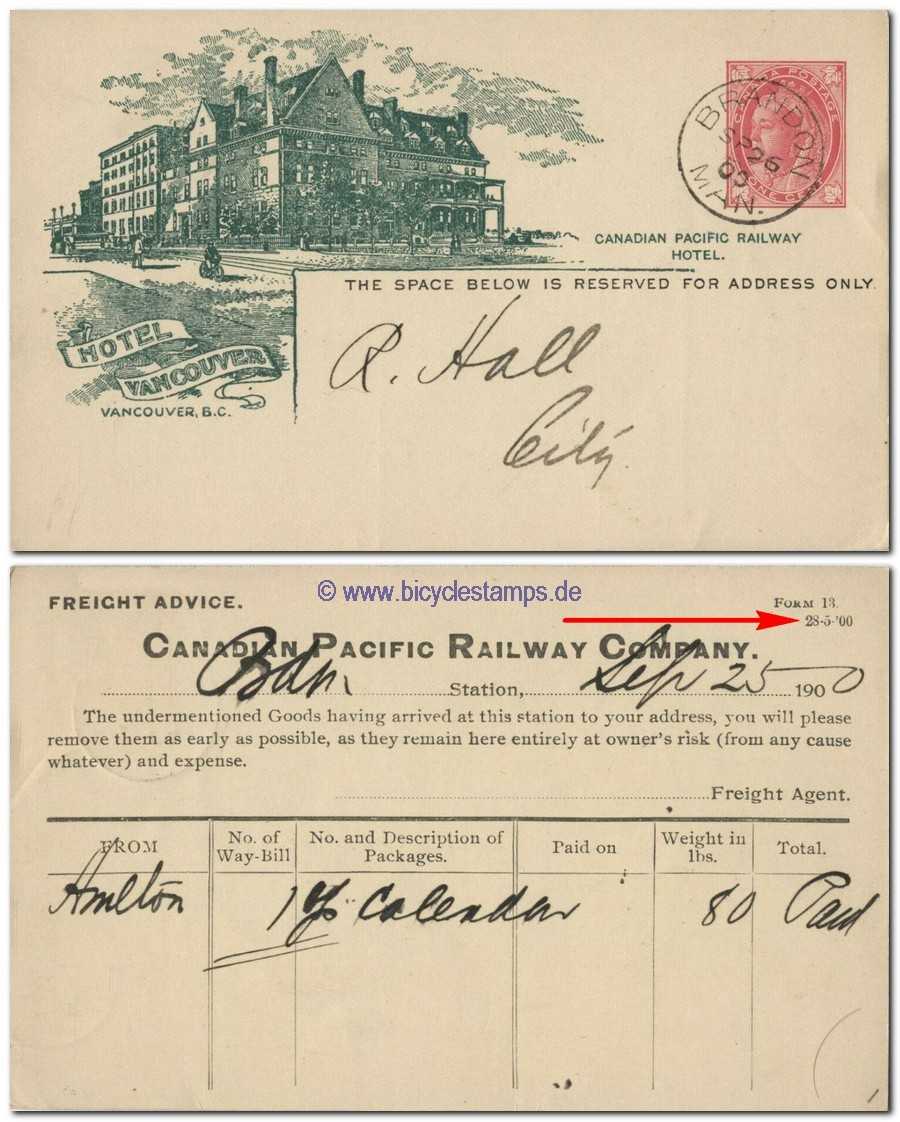 CANADA POSTAGE
ONE CENT
BRANDON
SP 26
00
MAN.
CANADIAN PACIFIC RAILWAY
HOTEL.
THE SPACE BELOW IS RESERVED FOR ADDRESS ONLY.
HOTEL
VANCOUVER
VANCOUVER, B.C.
R. Hall
City.
© www.bicyclestamps.de
FREIGHT ADVICE.
FORM 13.
28-5-'00
CANADIAN PACIFIC RAILWAY COMPANY.
Bdn Station, Sep 25 1900
The undermentioned Goods having arrived at this station to your address, you will please
remove them as early as possible, as they remain here entirely at owner's risk (from any cause
whatever) and expense.
Freight Agent.
FROM No. of Way-Bill No. and Description of Packages. Paid on Weight in lbs. Total.
Hamilton 1 Calendar 80 Paid